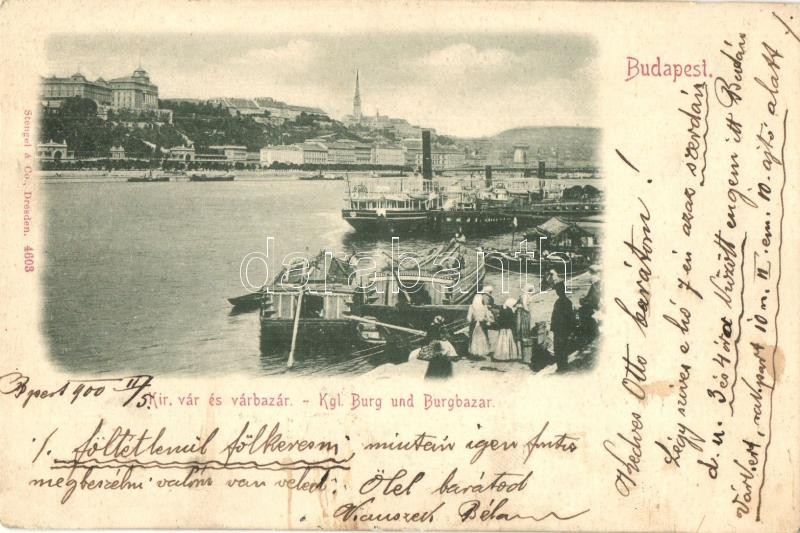 Budapest.
Stengel & Co., Dresden. 4603
darabanth
Kir. vár és várbazár. - Kgl. Burg und Burgbazar.
Bpest 900 II/5.
Kedves Otto barátom!
Légy szives e hó 7 én azaz szerdán
d. u. 3 és 4 óra között engem itt Budán
Várkert, rakpart 10 n. II. em. 10. ajtó alatt
föltétlenül fölkeresni, miután igen
megbeszélni valóm van veled. Ölel barátod
Béla